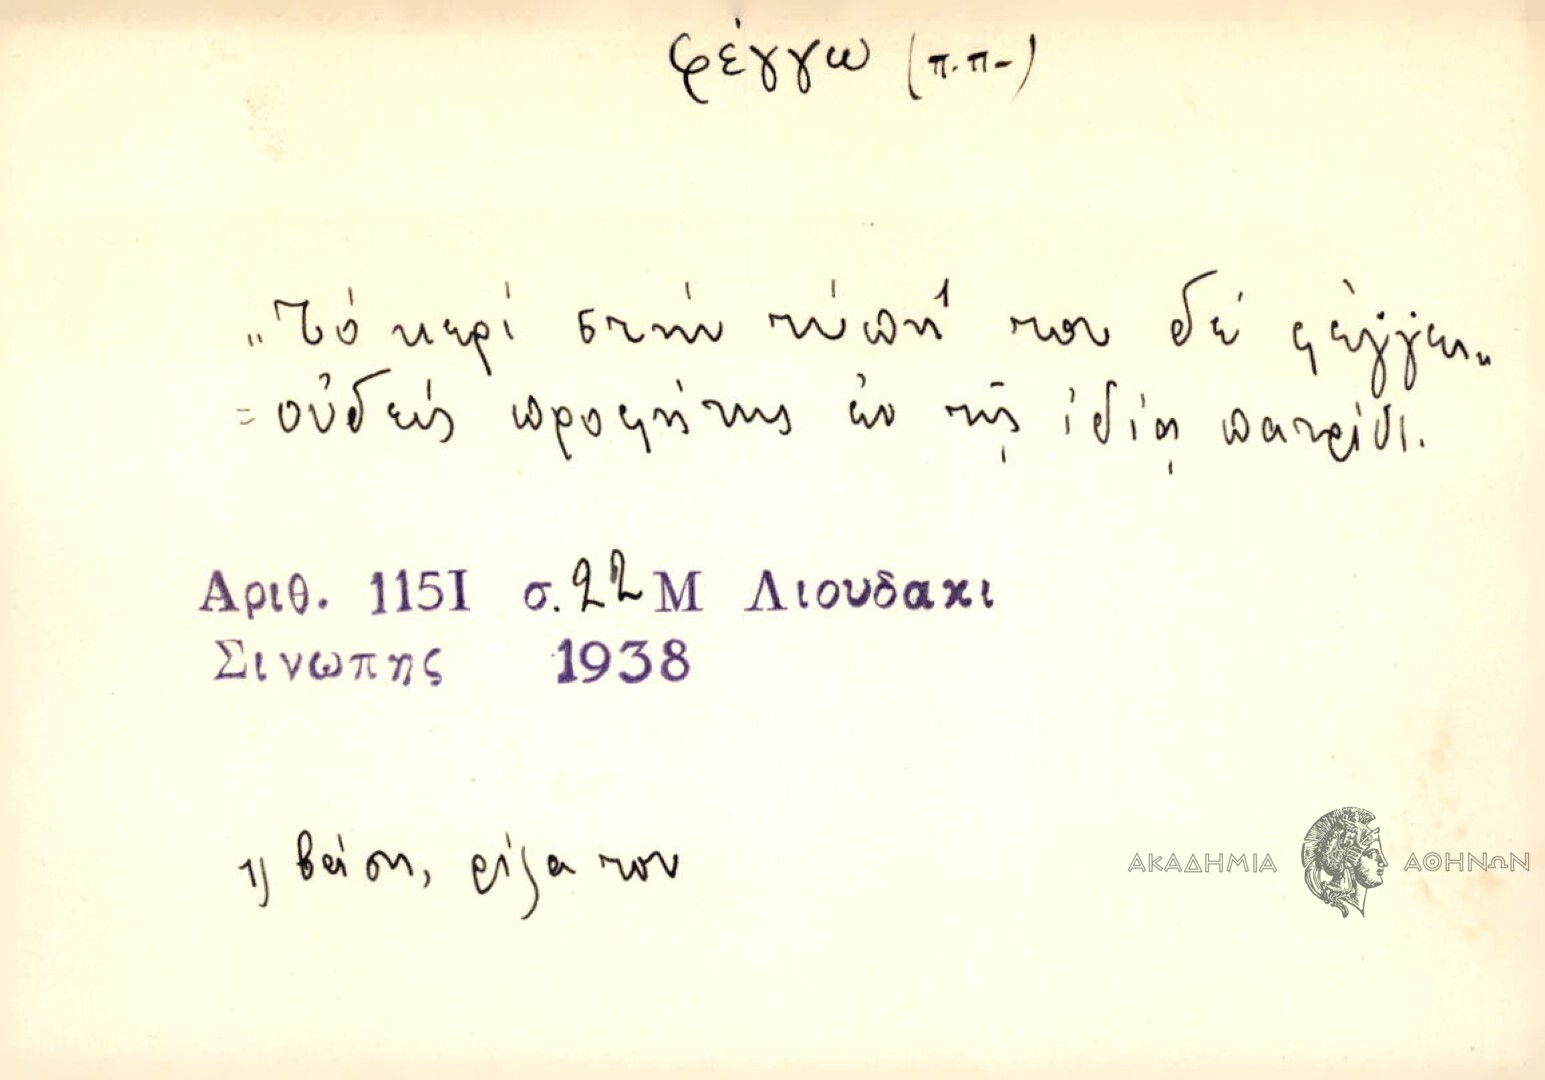 φέγγω (π.π-)
"Τό κερί στήν τύπη¹ του δέ φέγγει"
= οὐδείς προφήτης ἐν τῇ ἰδίᾳ πατρίδι.
Αριθ. 1151 σ. 22 Μ Λιουδακι
Σινωπης 1938
1) βάση, ρίζα του
ΑΚΑΔΗΜΙΑ ΑΘΗΝΩΝ